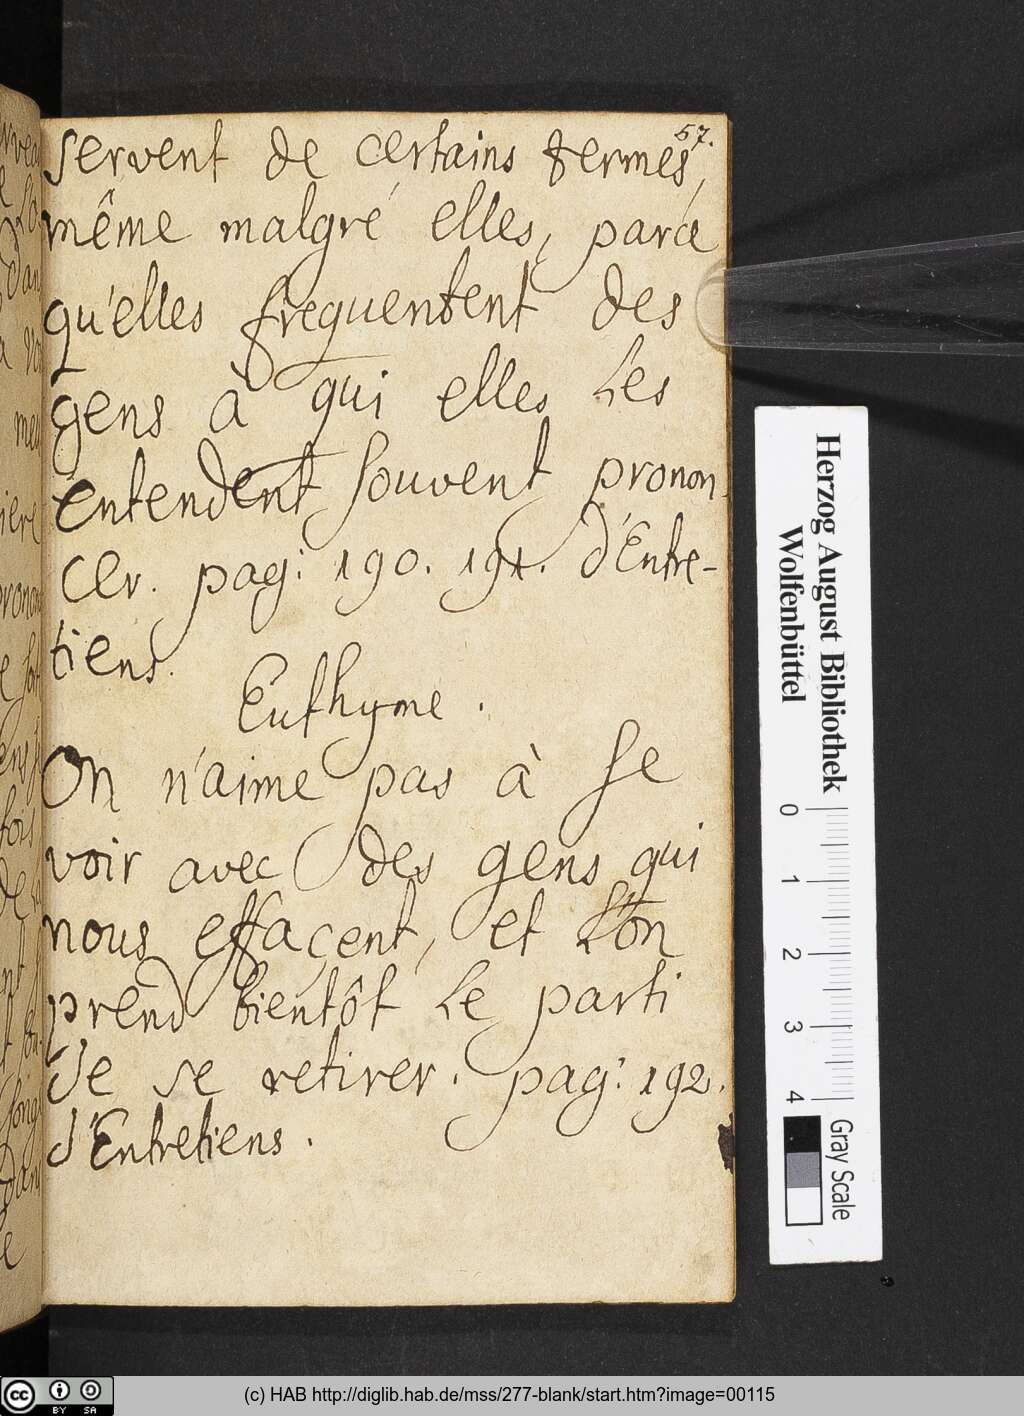 57.
servent de certains termes,
même malgré elles, parce
qu'elles frequentent des
gens à qui elles les
entendent souvent pronon-
cer. pag: 190. 191. d'Entre-
tiens.
Euthyme.
On n'aime pas à se
voir avec des gens qui
nous effaçent, et l'on
prend bientôt le parti
de se retirer. pag: 192.
d'Entretiens.
Herzog August Bibliothek
Wolfenbüttel
0 1 2 3 4
Gray Scale
cc BY SA
(c) HAB http://diglib.hab.de/mss/277-blank/start.htm?image=00115